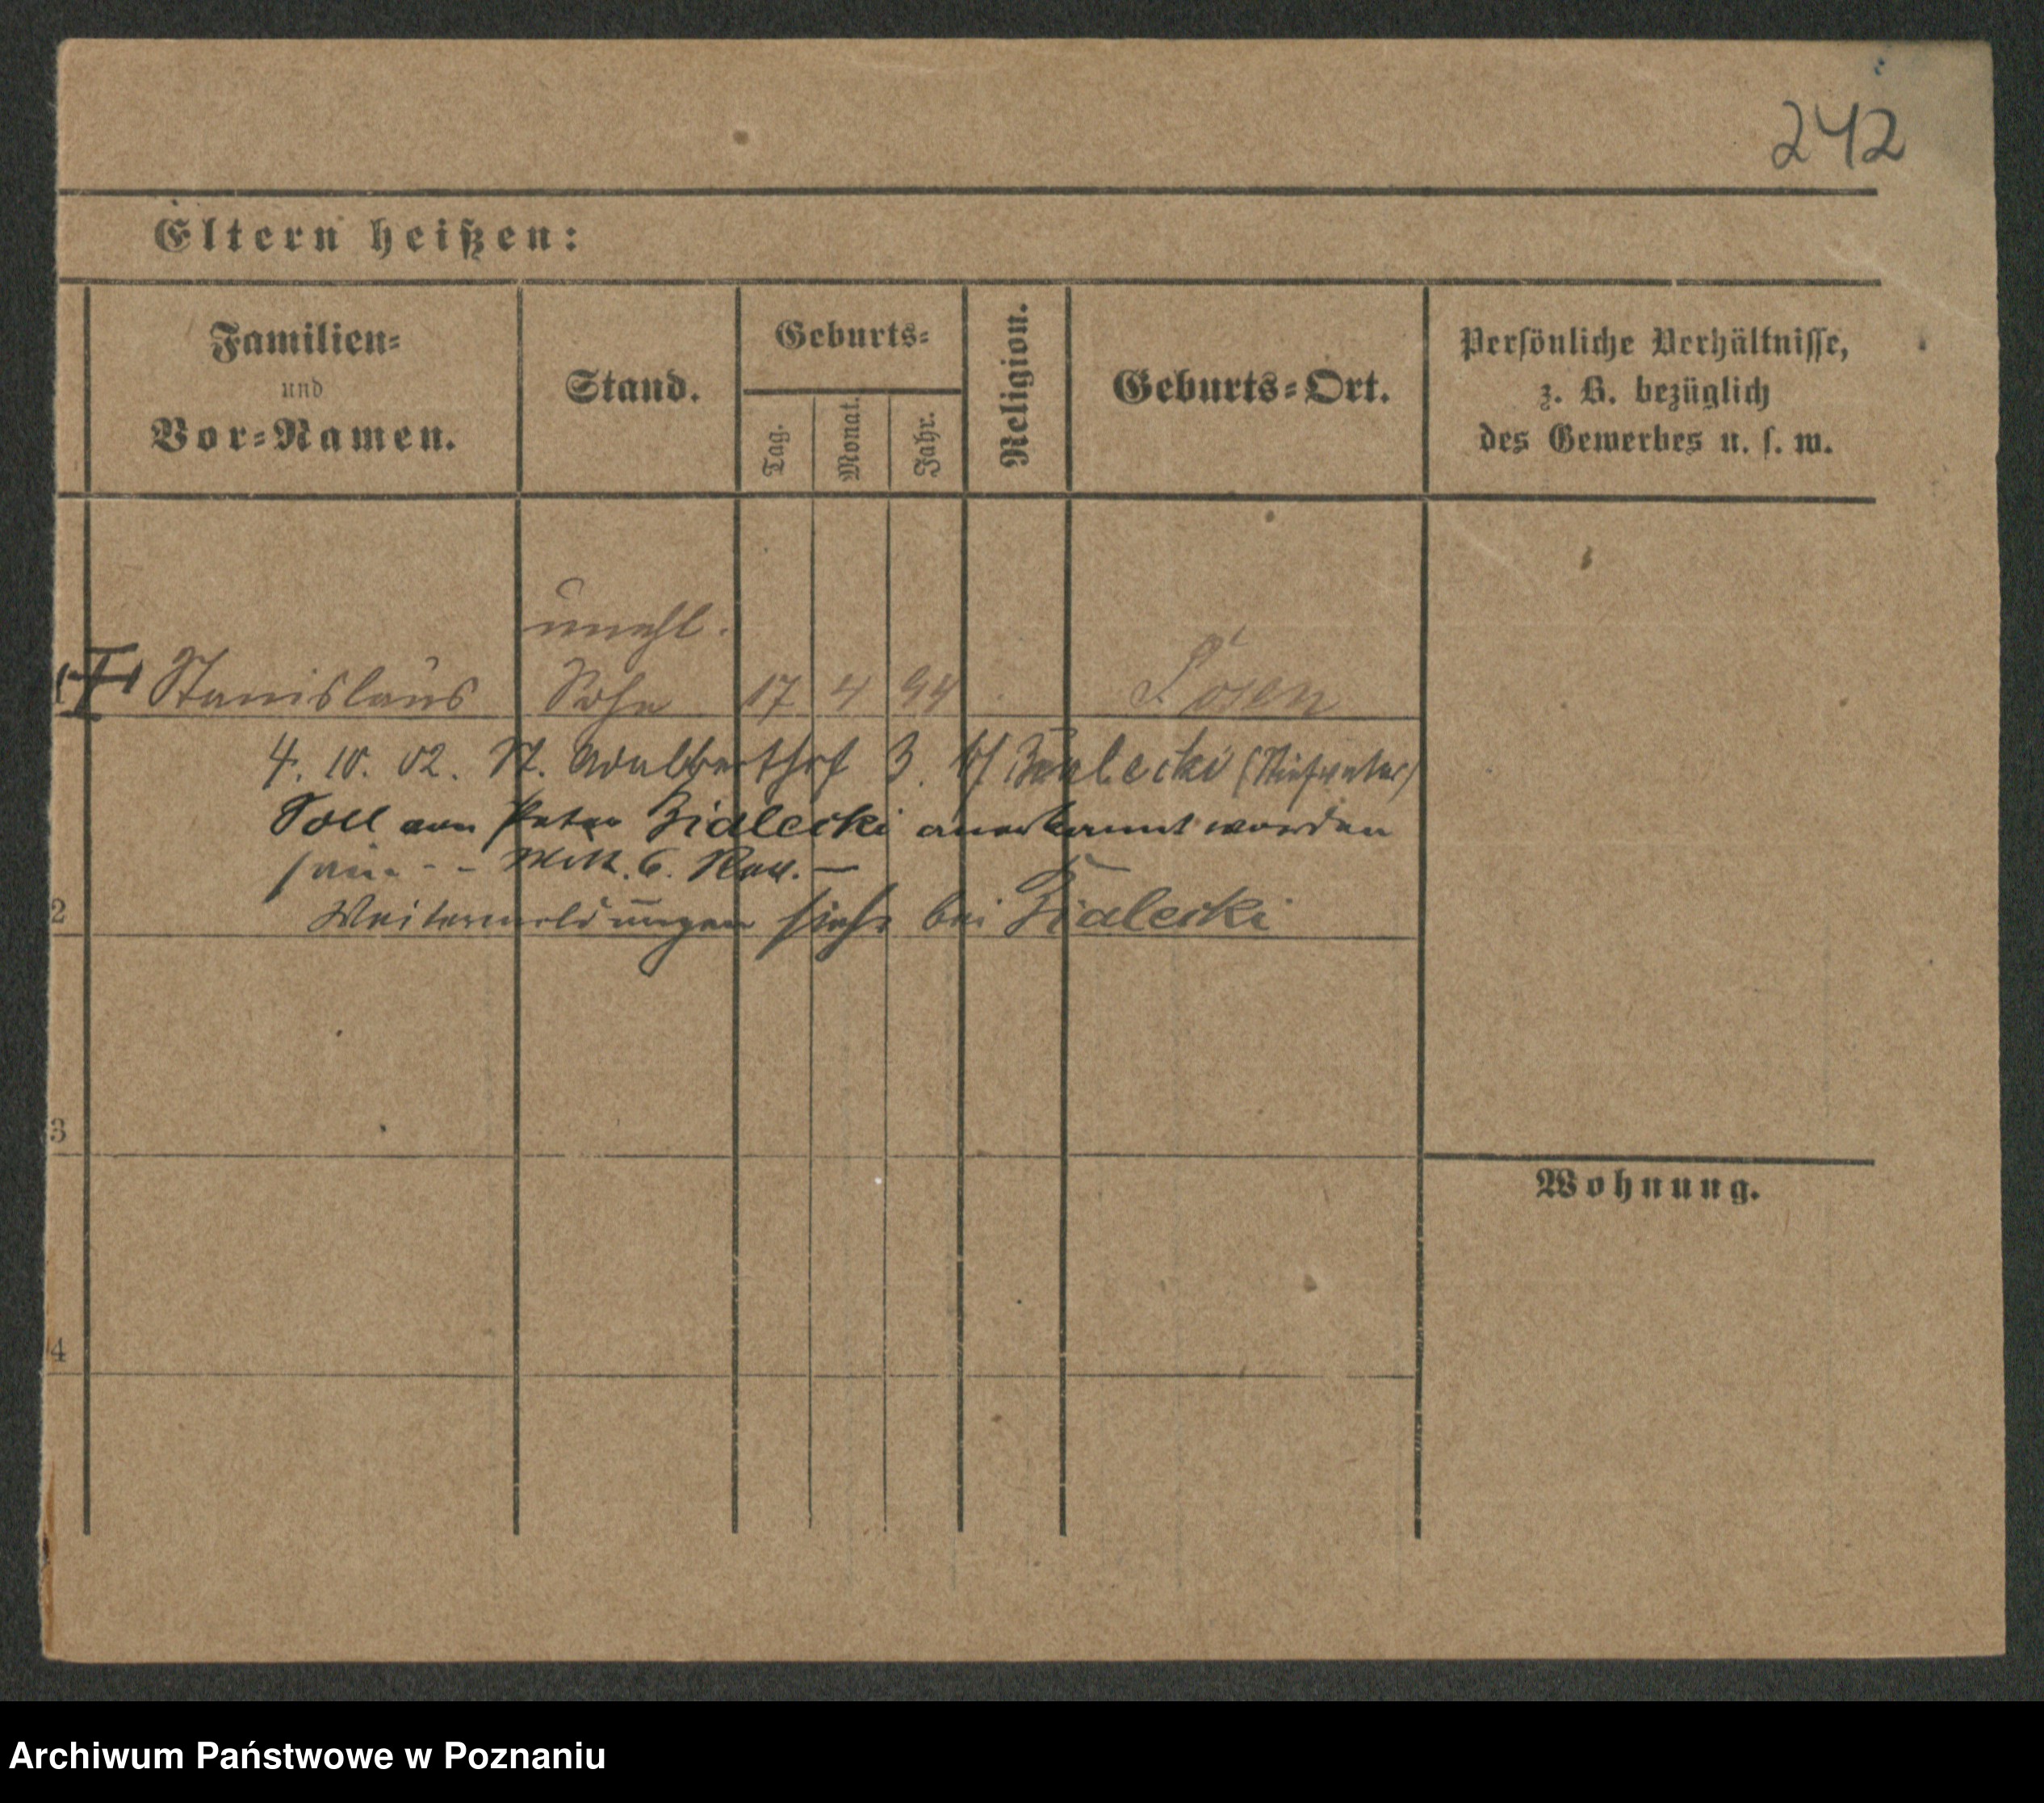 242
Eltern heißen:
Familien-
und
Vor-Namen.
Stand.
Geburts-
Tag.
Monat.
Jahr.
Religion.
Geburts-Ort.
Persönliche Verhältnisse,
z. B. bezüglich
des Gewerbes u. s. w.
unehl.
1 Stanislaus Sohn 17 4 94 Posen
4. 10. 02. St. Adalbertstr 3. bei Bialecki (Stiefvater)
Soll von Peter Bialecki anerkannt worden
sein - - 6.
2 Weitermeldungen siehe bei Bialecki
3
Wohnung.
4
Archiwum Państwowe w Poznaniu